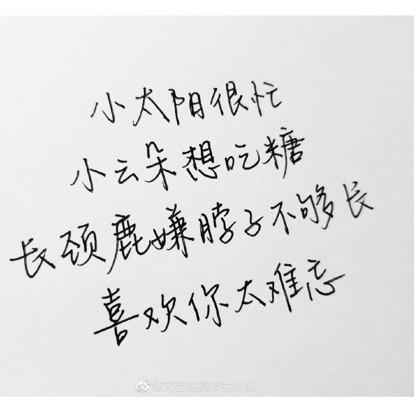 小太阳很忙
小云朵想吃糖
长颈鹿嫌脖子不够长
喜欢你太难忘